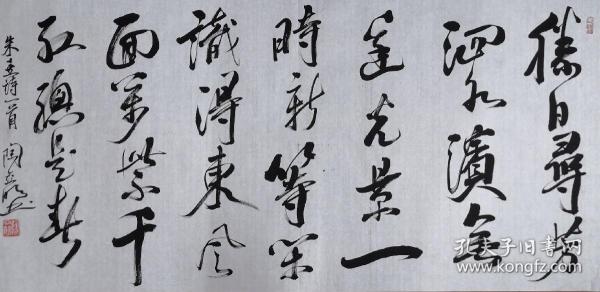 勝日尋芳
泗水濱無
邊光景一
時新等閒
識得東風
面萬紫千
紅總是春
朱熹詩一首 陶
孔夫子旧书网
www.kongfz.com